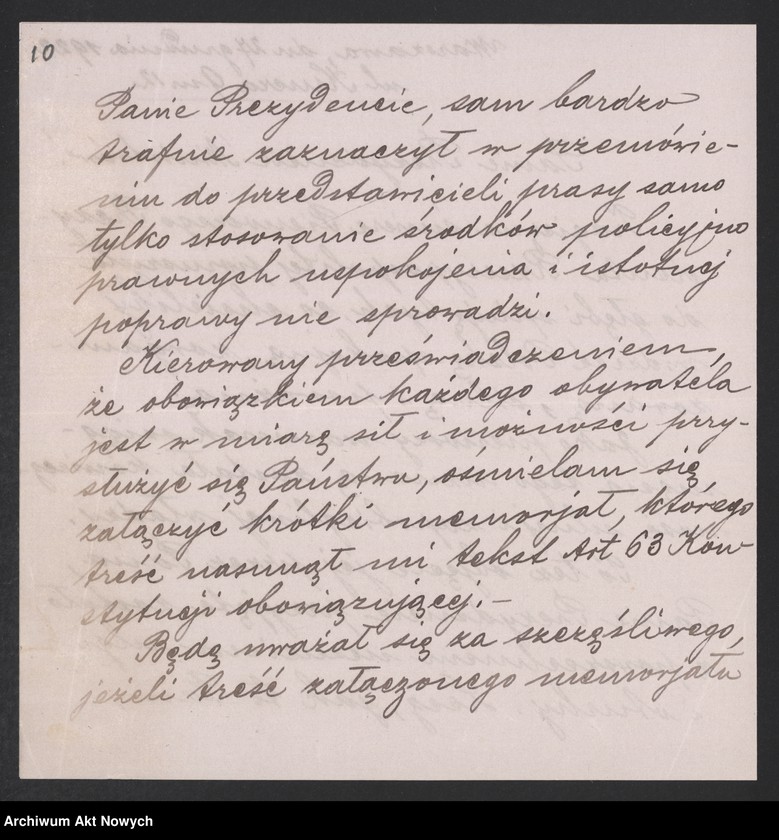 10
Panie Prezydencie, sam bardzo
trafnie zaznaczył w przemówie-
niu do przedstawicieli prasy samo
tylko stosowanie środków policyjno
prawnych uspokojenia i istotnej
poprawy nie sprowadzi.
Kierowany przeświadczeniem,
że obowiązkiem każdego obywatela
jest w miarę sił i możności przy-
służyć się Państwu, ośmielam się
załączyć krótki memorjał, którego
treść nasunął mi tekst Art 63 Kon-
stytucji obowiązującej.-
Będę uważał się za szczęśliwego,
jeżeli treść załączonego memorjału
Archiwum Akt Nowych